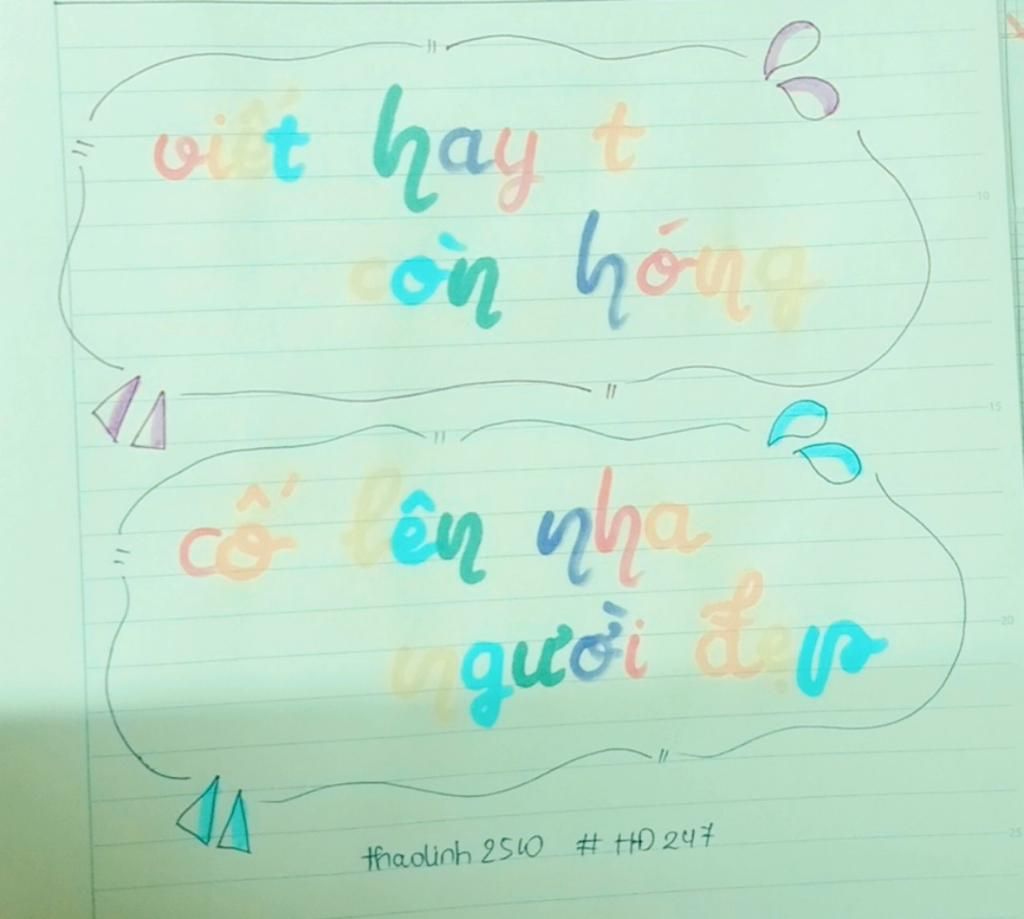 viết hay t
còn hóng
cố lên nha
người đẹp
thaolinh2510 # HD247